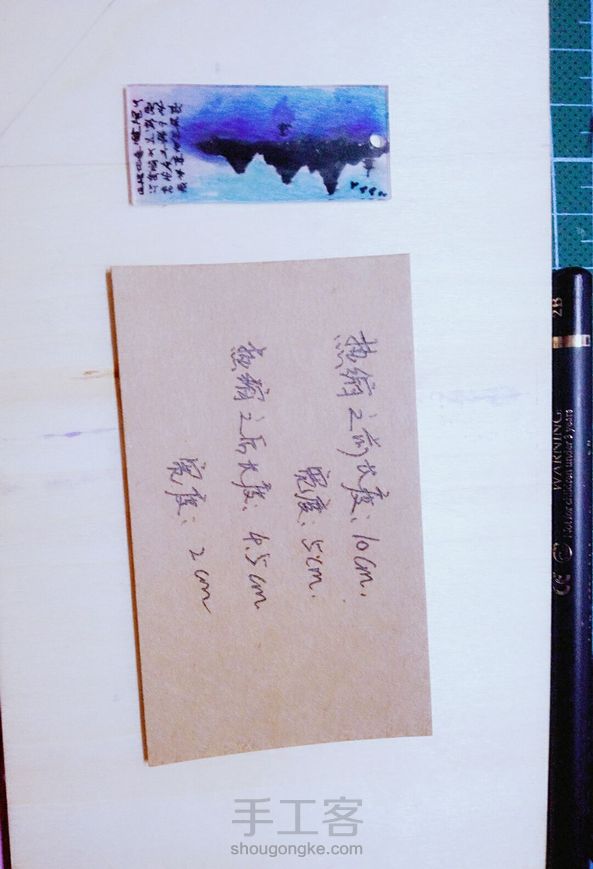 热缩之前长度：10cm.
宽度：5cm.
热缩之后长度：4.5cm
宽度：2cm
2B
WARNING
Not for children under 3 years
CE
手工客
shougongke.com